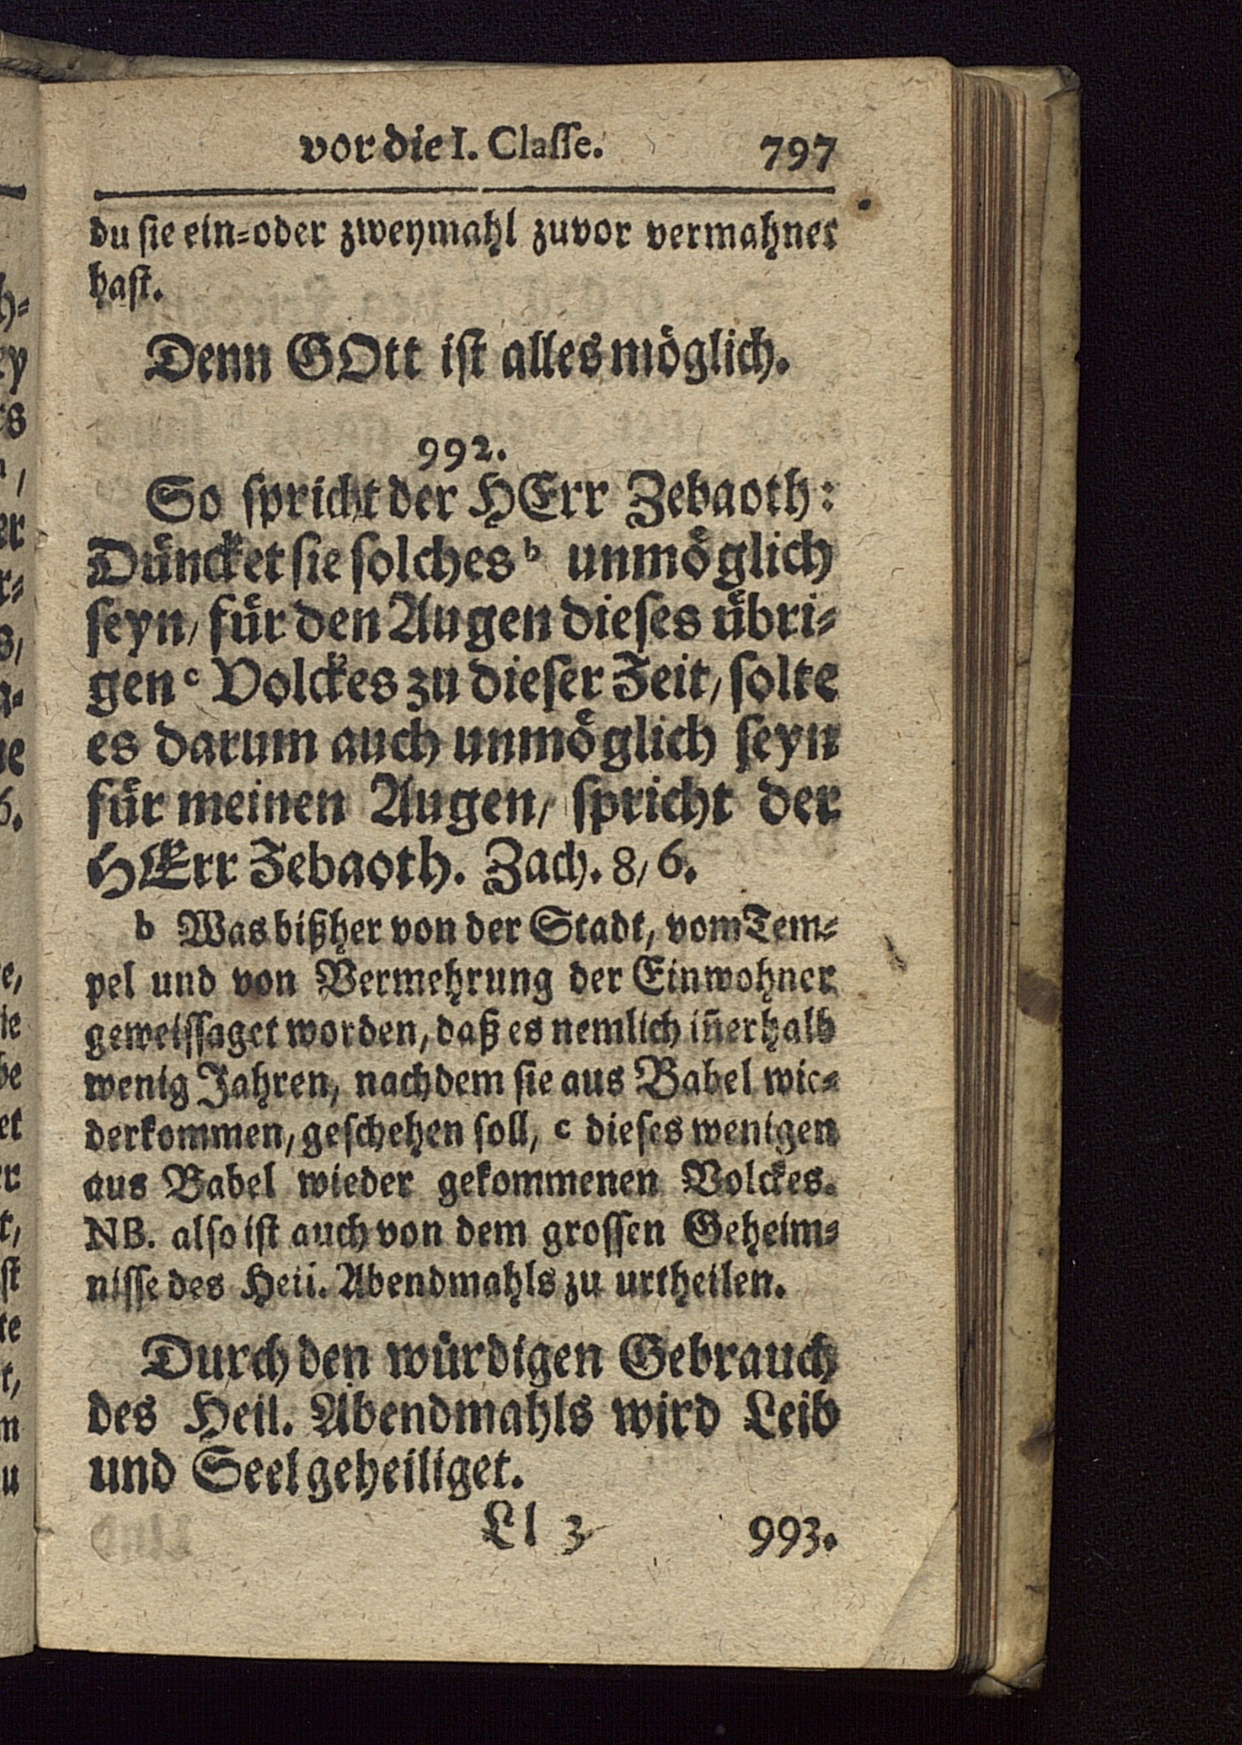 vor die I. Classe. 797
du sie ein-oder zweymahl zuvor vermahnet
hast.
Denn GOtt ist alles möglich.
992.
So spricht der HErr Zebaoth:
Düncket sie solches b unmöglich
seyn, für den Augen dieses übri-
gen c Volckes zu dieser Zeit, solte
es darum auch unmöglich seyn
für meinen Augen, spricht der
HErr Zebaoth. Zach. 8, 6.
b Was bißher von der Stadt, vom Tem-
pel und von Vermehrung der Einwohner
geweissaget worden, daß es nemlich iñerhalb
wenig Jahren, nachdem sie aus Babel wie-
derkommen, geschehen soll, c dieses wenigen
aus Babel wieder gekommenen Volckes.
NB. also ist auch von dem grossen Geheim-
nisse des Heil. Abendmahls zu urtheilen.
Durch den würdigen Gebrauch
des Heil. Abendmahls wird Leib
und Seel geheiliget.
Ll 3 993.